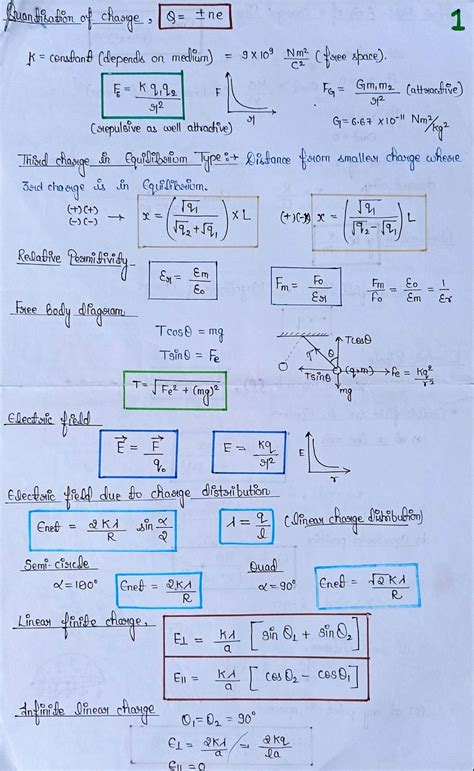 Quantisation of charge, Q = ±ne
1
K = constant (depends on medium) = 9 × 10⁹ Nm²/C² (free space).
F_E = K q₁q₂/r²
F
r
F_G = Gm₁m₂/r² (attractive)
(repulsive as well attractive)
G = 6.67 × 10⁻¹¹ Nm²/kg²
Third charge in Equilibrium Type :→ Distance from smaller charge where
3rd charge is in Equilibrium.
(+)(+)
(-)(-) → x = (√q₁/(√q₂+√q₁)) × L
(+)(-) x = (√q₁/(√q₂-√q₁)) L
Relative Permitivity
Er = Em/E₀
Fm = F₀/Er
Fm/F₀ = E₀/Em = 1/Er
Free body diagram
Tcosθ = mg
Tsinθ = Fe
T = √Fe² + (mg)²
Tcosθ
T
θ
(q,m)
Fe = kq²/r²
Tsinθ
mg
Electric field
E⃗ = F⃗/q₀
E = kq/r²
E
r
Electric field due to charge distribution
Enet = 2Kλ/R sin α/2
λ = q/l (linear charge distribution)
Semi-circle
α = 180°
Enet = 2Kλ/R
Quad
α = 90°
Enet = √2Kλ/R
Linear finite charge,
E⊥ = Kλ/a [sin θ₁ + sin θ₂]
E|| = Kλ/a [cos θ₂ - cos θ₁]
Infinite linear charge
θ₁ = θ₂ = 90°
E⊥ = 2Kλ/a = 2Kq/la
E|| = 0